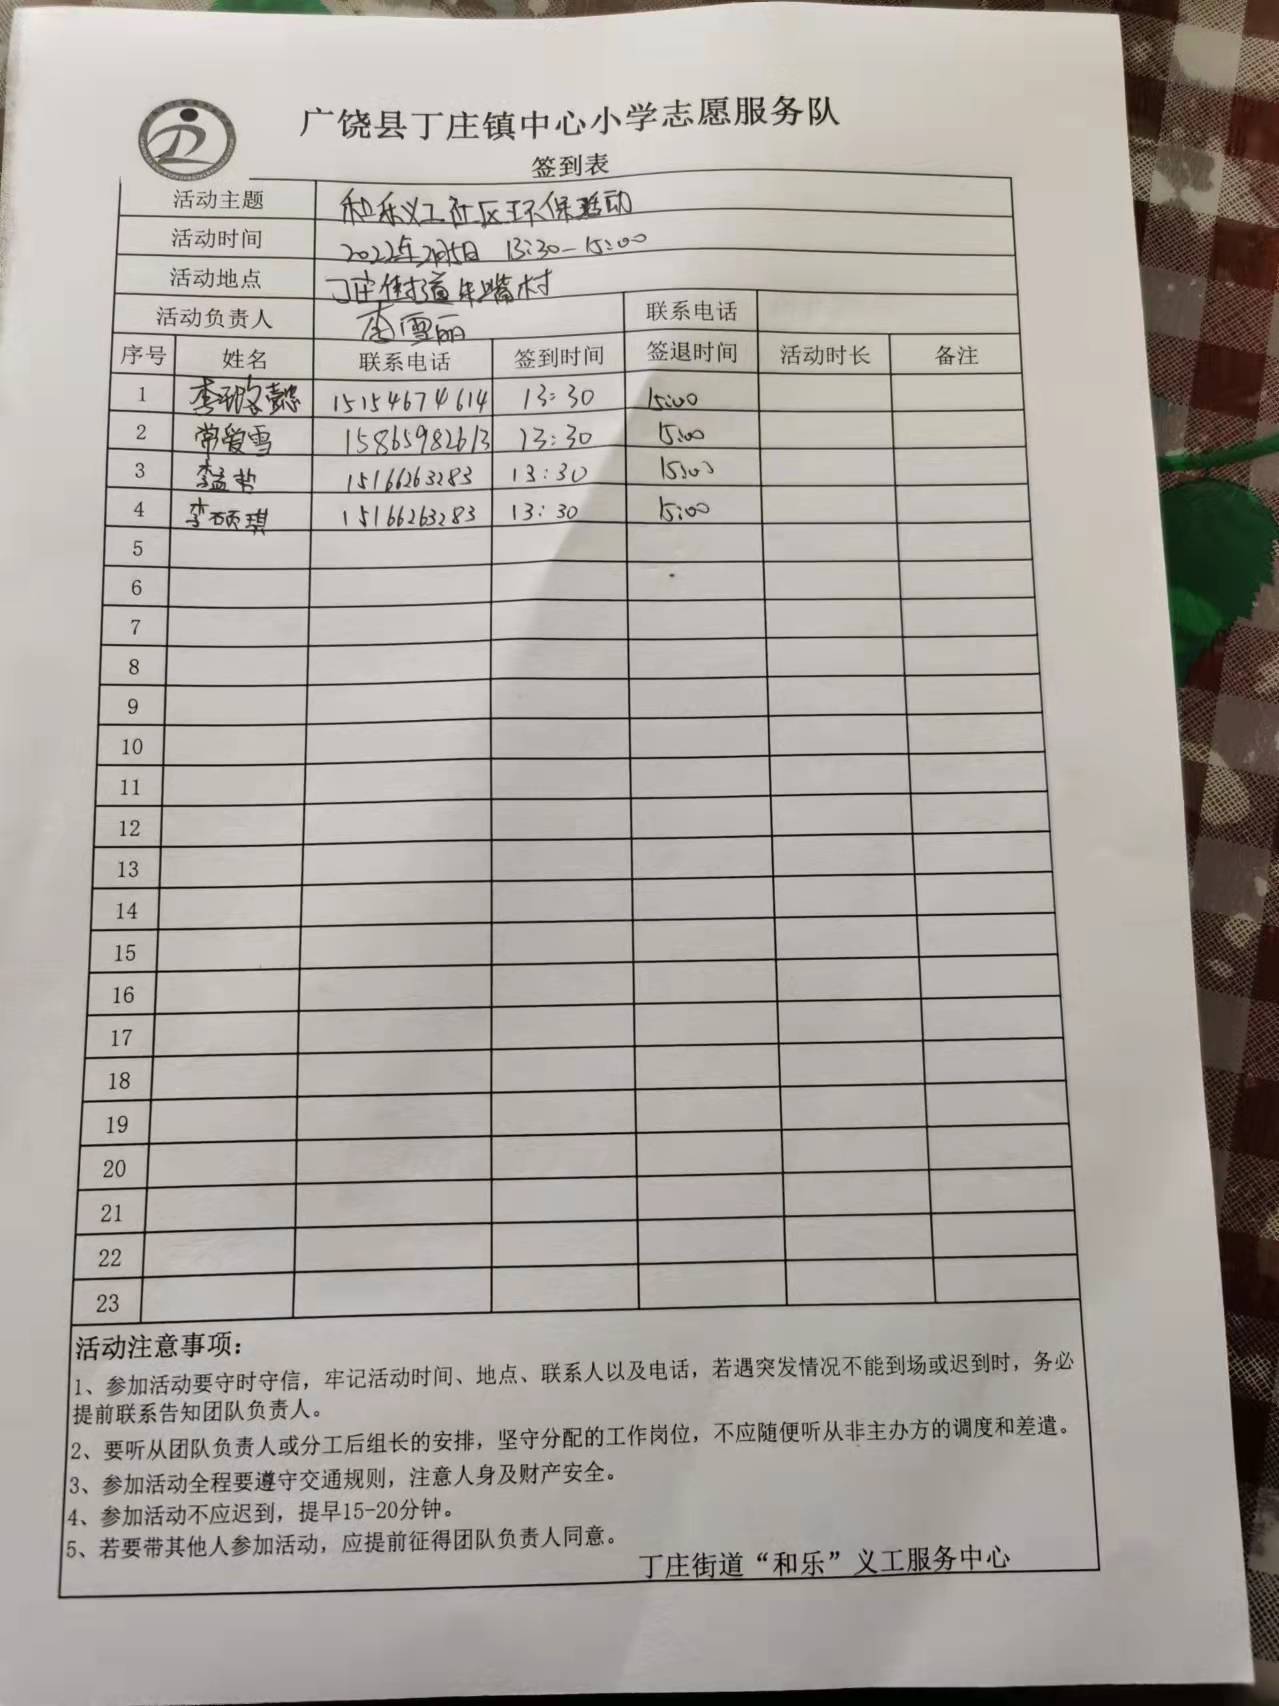 广饶县丁庄镇中心小学志愿服务队
签到表
活动主题 和乐义工社区环保活动
活动时间 2022年2月5日 13:30-15:00
活动地点 丁庄街道朱嘴村
活动负责人 李雪丽 联系电话
序号 姓名 联系电话 签到时间 签退时间 活动时长 备注
1 李 懿 15154674614 13:30 15:00
2 常爱雪 15865982613 13:30 15:00
3 李孟哲 15166263283 13:30 15:00
4 李硕琪 15166263283 13:30 15:00
5
6
7
8
9
10
11
12
13
14
15
16
17
18
19
20
21
22
23
活动注意事项：
1、参加活动要守时守信，牢记活动时间、地点、联系人以及电话，若遇突发情况不能到场或迟到时，务必
提前联系告知团队负责人。
2、要听从团队负责人或分工后组长的安排，坚守分配的工作岗位，不应随便听从非主办方的调度和差遣。
3、参加活动全程要遵守交通规则，注意人身及财产安全。
4、参加活动不应迟到，提早15-20分钟。
5、若要带其他人参加活动，应提前征得团队负责人同意。
丁庄街道“和乐”义工服务中心